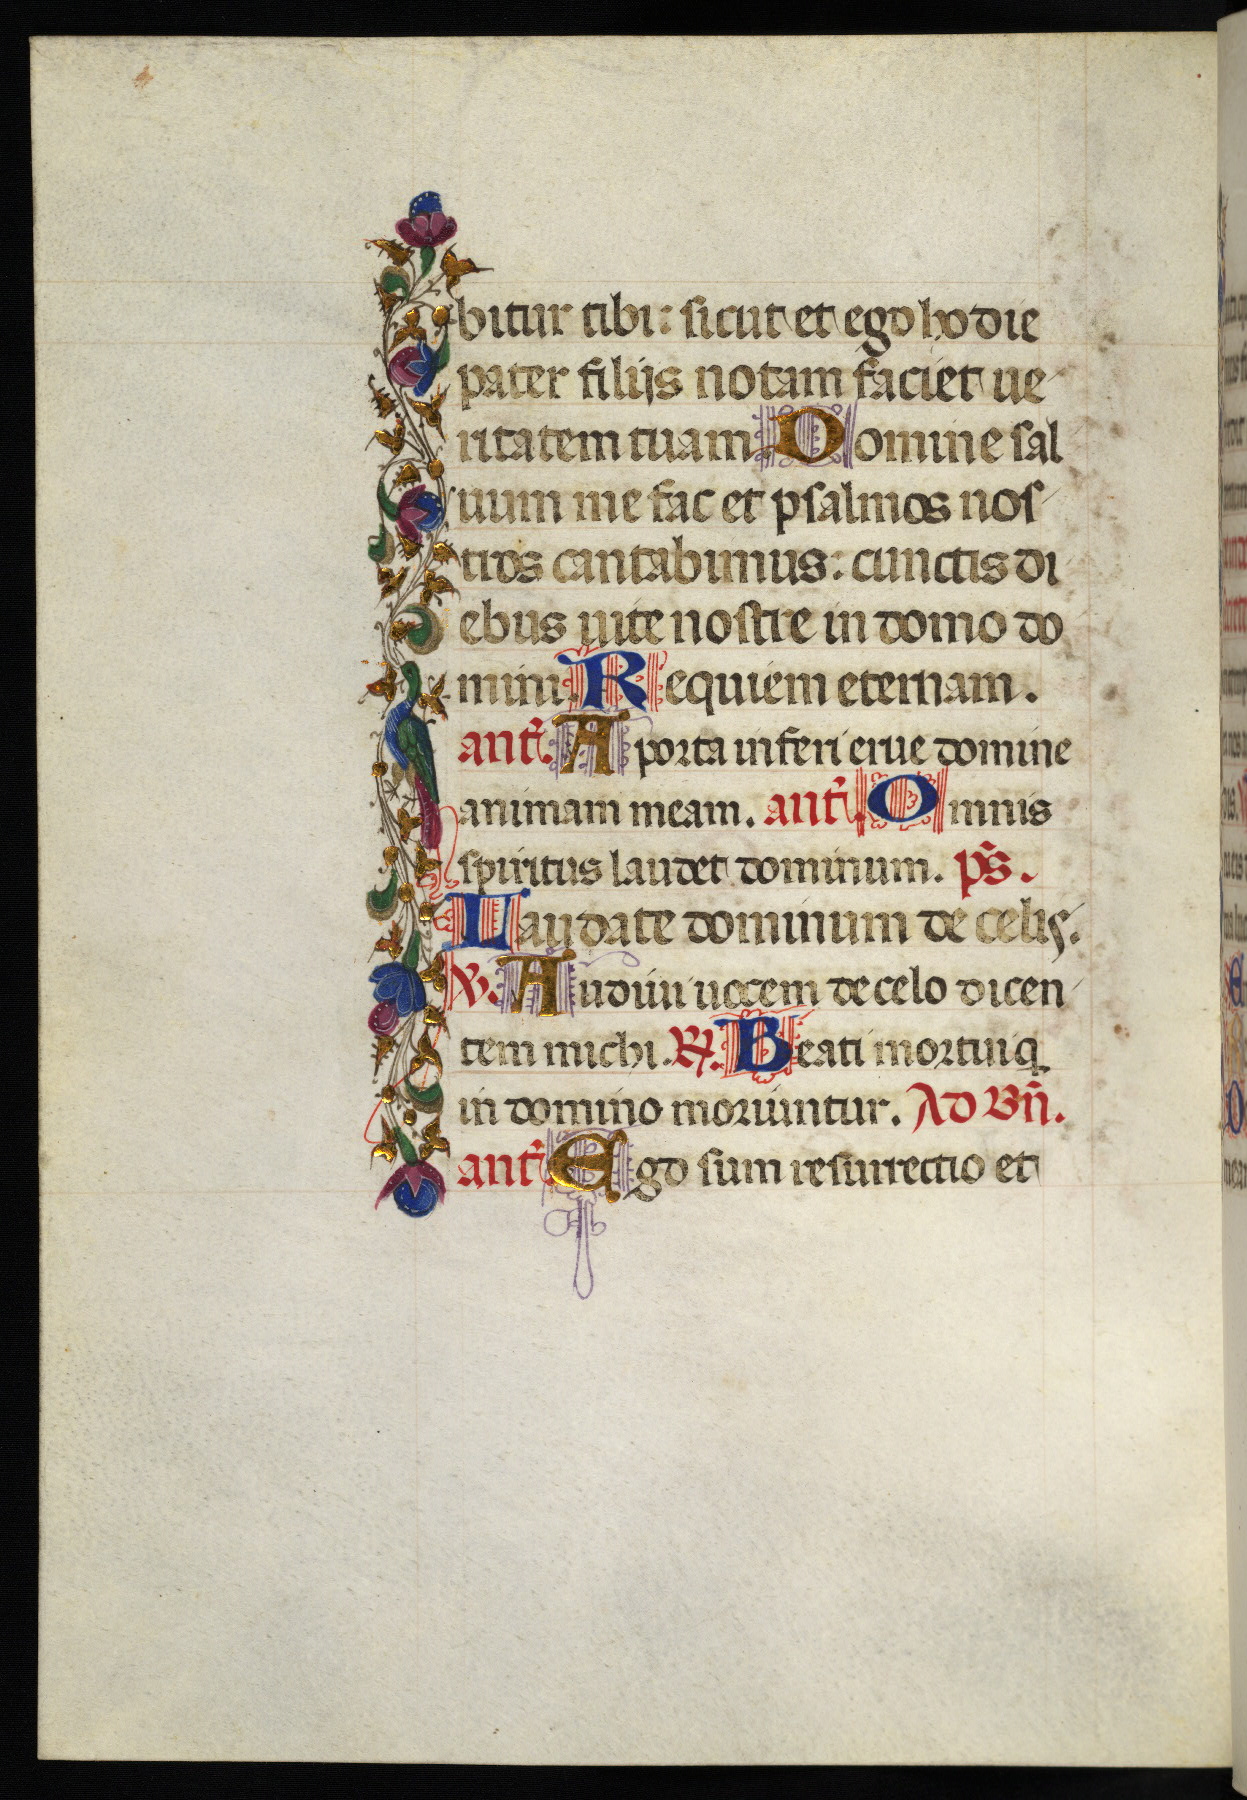 bitur tibi: sicut et ego hodie
pater filijs notam faciet ue
ritatem tuam. Domine sal
uum me fac et psalmos nos
tros cantabimus: cunctis di
ebus uite nostre in domo do
mini. Requiem eternam.
añt. A porta inferi erue domine
animam meam. añt. Omnis
spiritus laudet dominum. p̃s.
Laudate dominum de celis.
℣. Audiui uocem de celo dicen
tem michi. ℟. Beati mortui q̣
in domino moriuntur. Ad Bñ.
añt. Ego sum resurrectio et